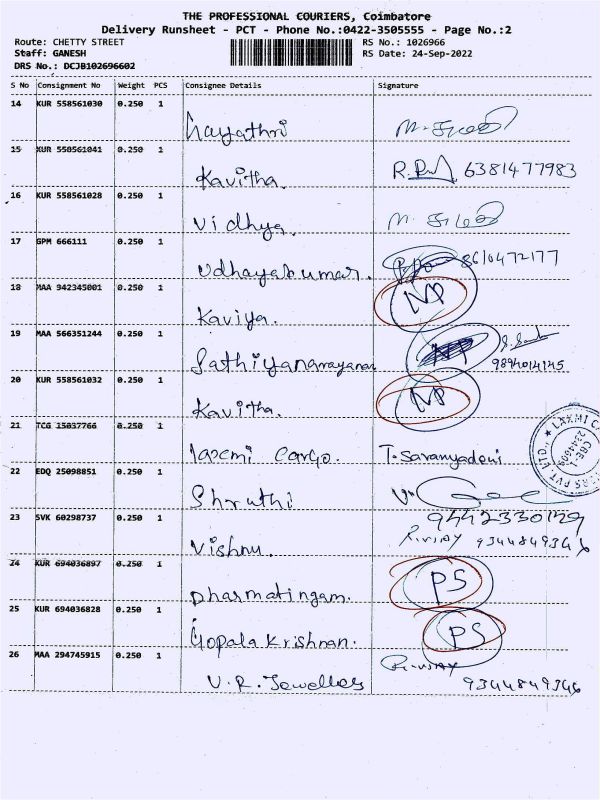 THE PROFESSIONAL COURIERS, Coimbatore
Delivery Runsheet - PCT - Phone No.:0422-3505555 - Page No.:2
Route: CHETTY STREET
RS No.: 1026966
Staff: GANESH
RS Date: 24-Sep-2022
DRS No.: DCJB102696602
S No Consignment No Weight PCS Consignee Details Signature
14 KUR 558561030 0.250 1
Gayathri
15 KUR 558561041 0.250 1
Kavitha. 6381477983
16 KUR 558561028 0.250 1
Vidhya.
17 GPM 666111 0.250 1
Udhayakumar. 8610472177
18 MAA 942345001 0.250 1 NP
Kaviya.
19 MAA 566351244 0.250 1
Sathiyanarayanan
20 KUR 558561032 0.250 1 NP
Kavitha.
21 TCG 15037766 0.250 1
laxmi cargo. T. Saranyadevi
22 EDQ 25098851 0.250 1
Shruthi
23 SVK 60298737 0.250 1
Vishnu. R.VIJAY 9344849346
24 KUR 694036897 0.250 1
Dharmalingam. PS
25 KUR 694036828 0.250 1
Gopala Krishnan. PS
26 MAA 294745915 0.250 1 R.VIJAY
V.R. Jewellers 9344849346